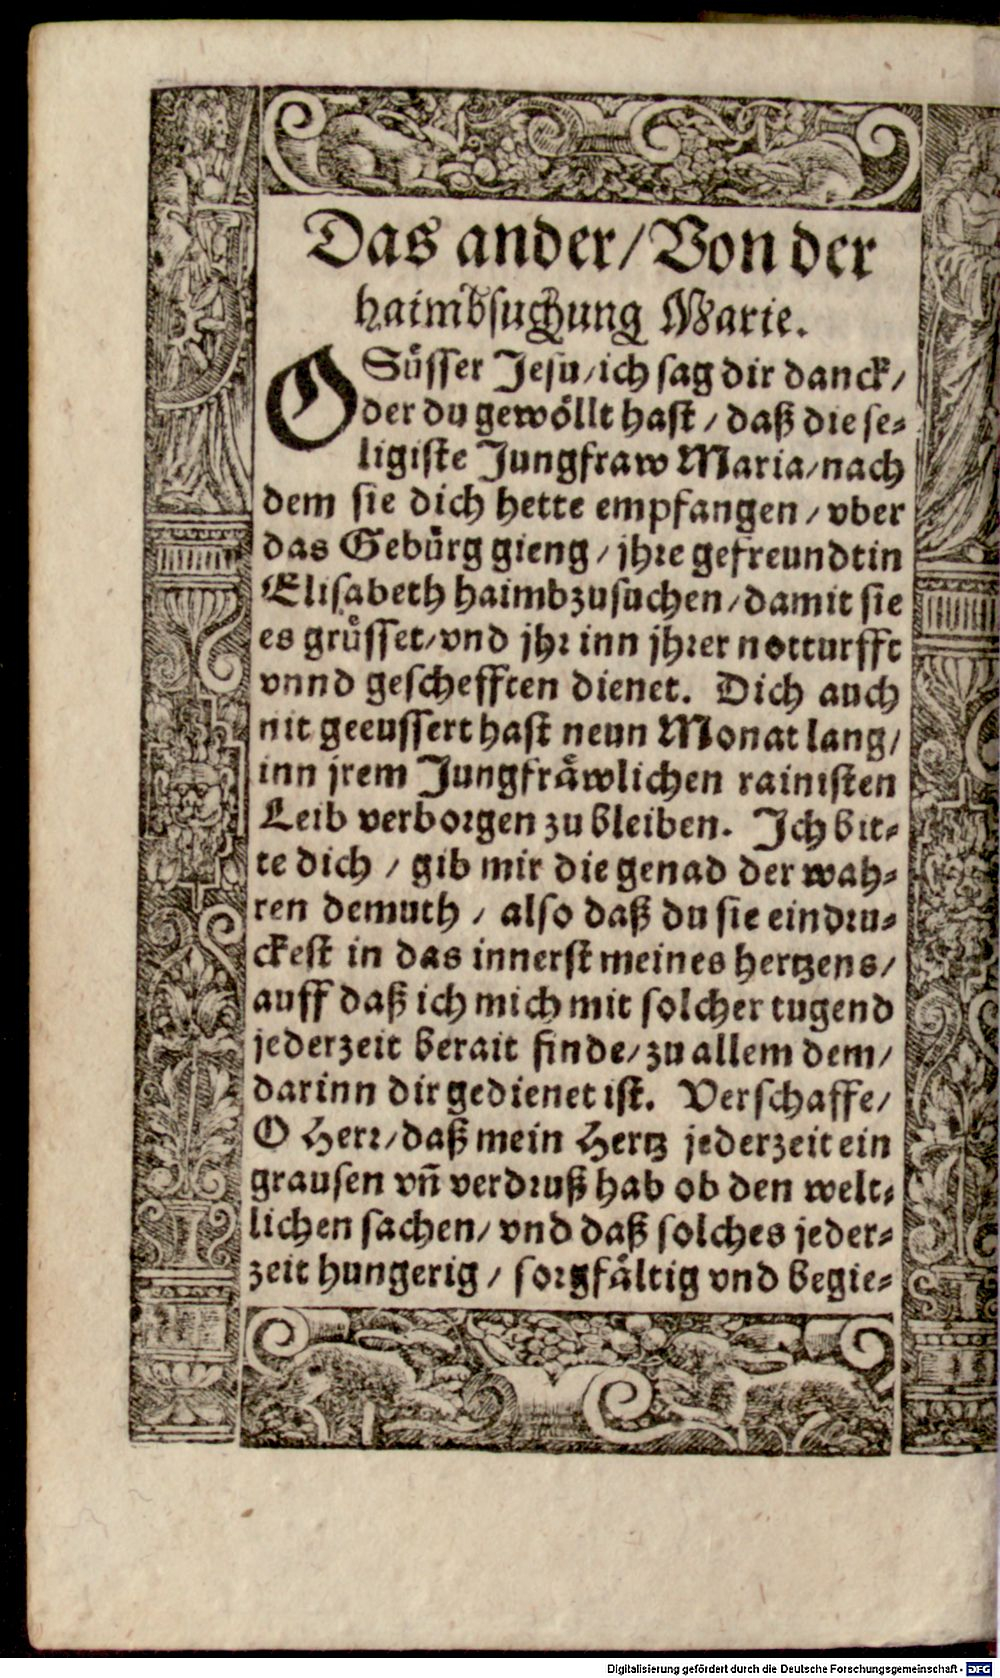 Das ander/ Von der
haimbsuchung Marie.
O Süsser Jesu/ ich sag dir danck/
der du gewöllt hast / daß die se-
ligiste Jungfraw Maria/ nach
dem sie dich hette empfangen / vber
das Gebürg gieng / jhre gefreundtin
Elisabeth haimbzusuchen/ damit sie
es grüsset/ vnd jhr inn jhrer notturfft
vnnd geschefften dienet. Dich auch
nit geeussert hast neun Monat lang/
inn jrem Jungfräwlichen rainisten
Leib verborgen zu bleiben. Ich bit-
te dich / gib mir die genad der wah-
ren demuth / also daß du sie eindru-
ckest in das innerst meines hertzens/
auff daß ich mich mit solcher tugend
jederzeit berait finde/ zu allem dem/
darinn dir gedienet ist. Verschaffe/
O Herr/ daß mein Hertz jederzeit ein
grausen vñ verdruß hab ob den welt-
lichen sachen/ vnd daß solches jeder-
zeit hungerig / sorgfältig vnd begie-
Digitalisierung gefördert durch die Deutsche Forschungsgemeinschaft - DFG